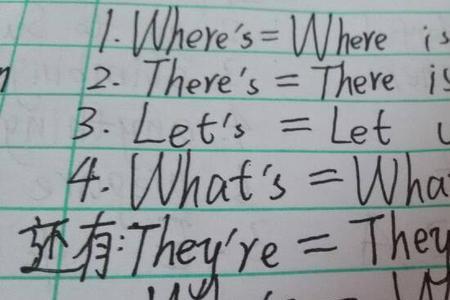 1. Where's = Where is
2. There's = There is
3. Let's = Let
4. What's = Wha
还有: They're = They